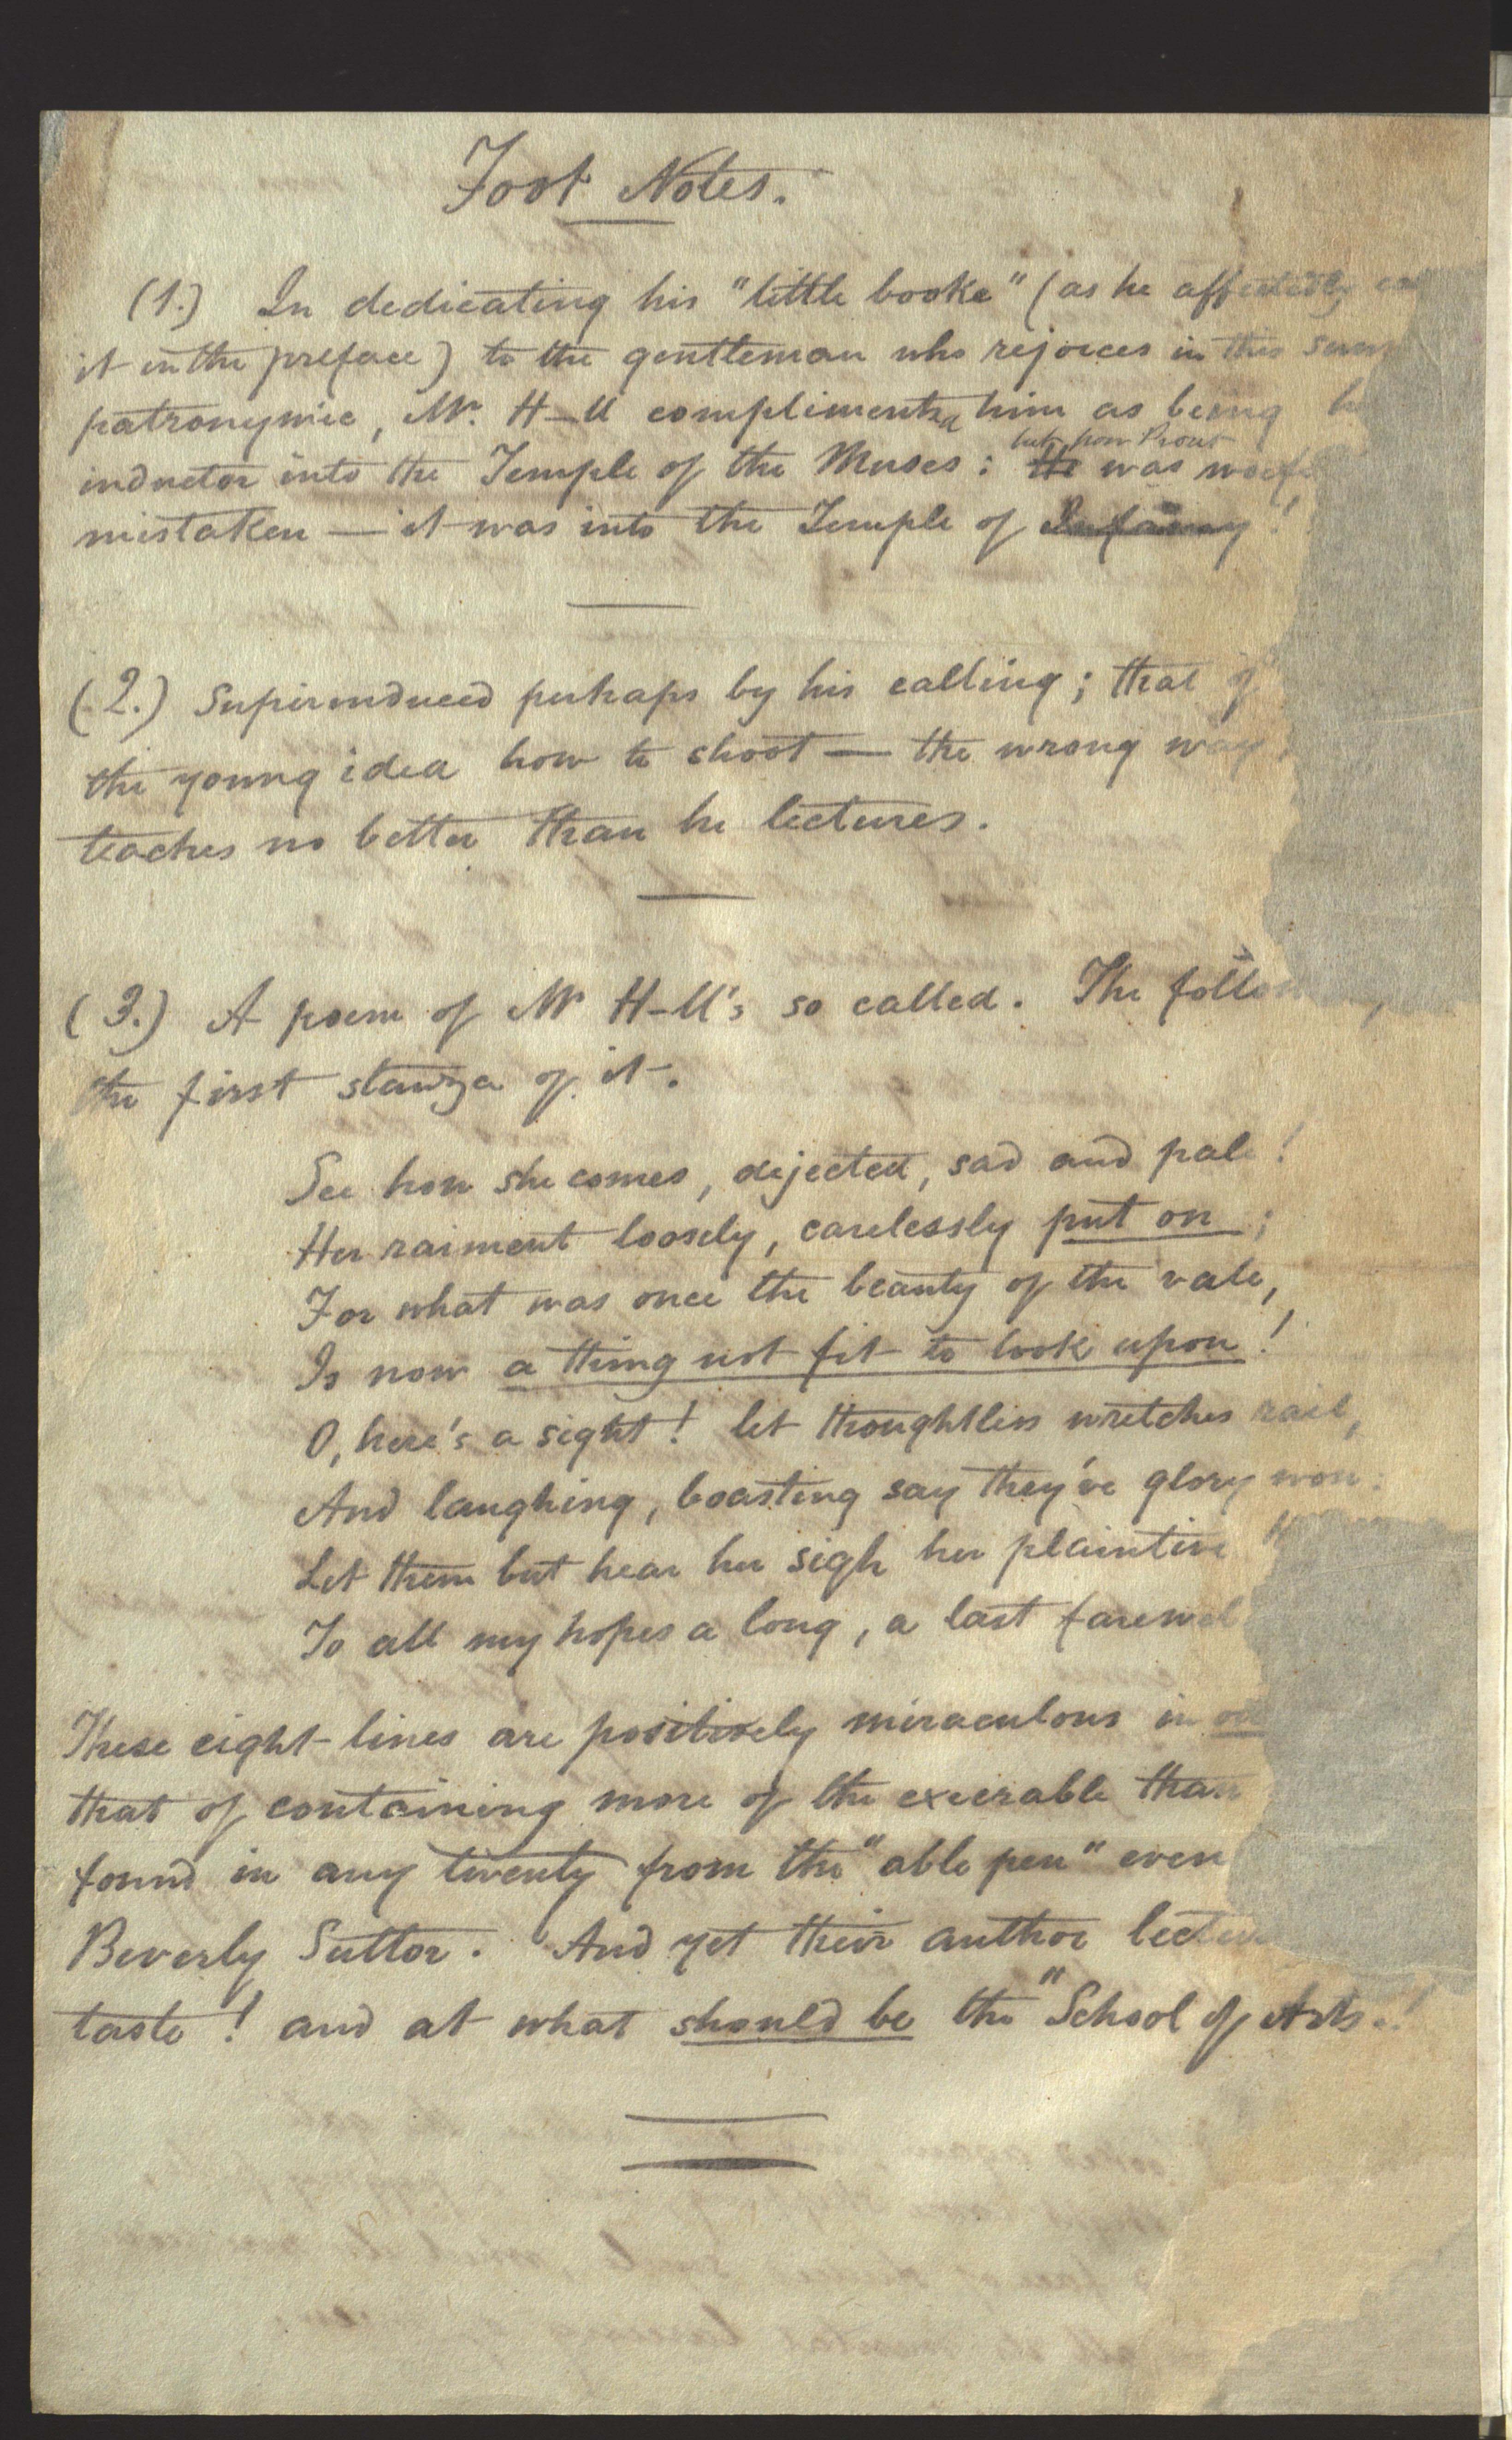 Foot Notes.
(1.) In dedicating his "little booke" (as he affectedly
it in the preface) to the gentleman who rejoices in this
patronymic, Mr. H–ll complimented him as being
inductor into the Temple of the Muses:
but poor Prout
He was
mistaken — it was into the Temple of Infamy!
(2.) Superinduced perhaps by his calling; that of
the young idea how to shoot — the wrong way
teaches no better than he lectures.
(3.) A poem of Mr H–ll's so called. The
the first stanza of it.
See how she comes, dejected, sad and pale!
Her raiment loosely, carelessly put on;
For what was once the beauty of the vale,
Is now a thing not fit to look upon!
O, here's a sight! let thoughtless wretches rail,
And laughing, boasting say they've glory won:
Let them but hear her sigh her plaintive
To all my hopes a long, a last
These eight lines are positively miraculous in
that of containing more of the execrable than
found in any twenty from the "able pen" even
Beverly Suttor. And yet their author
taste! and at what should be the "School of Arts.!